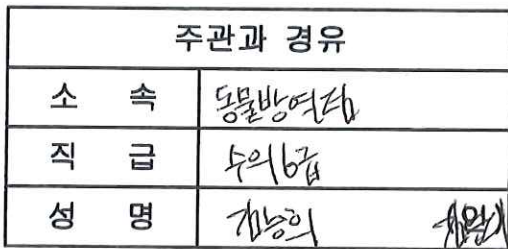 주관과 경유
소 속 동물방역팀
직 급 수의6급
성 명 김승희